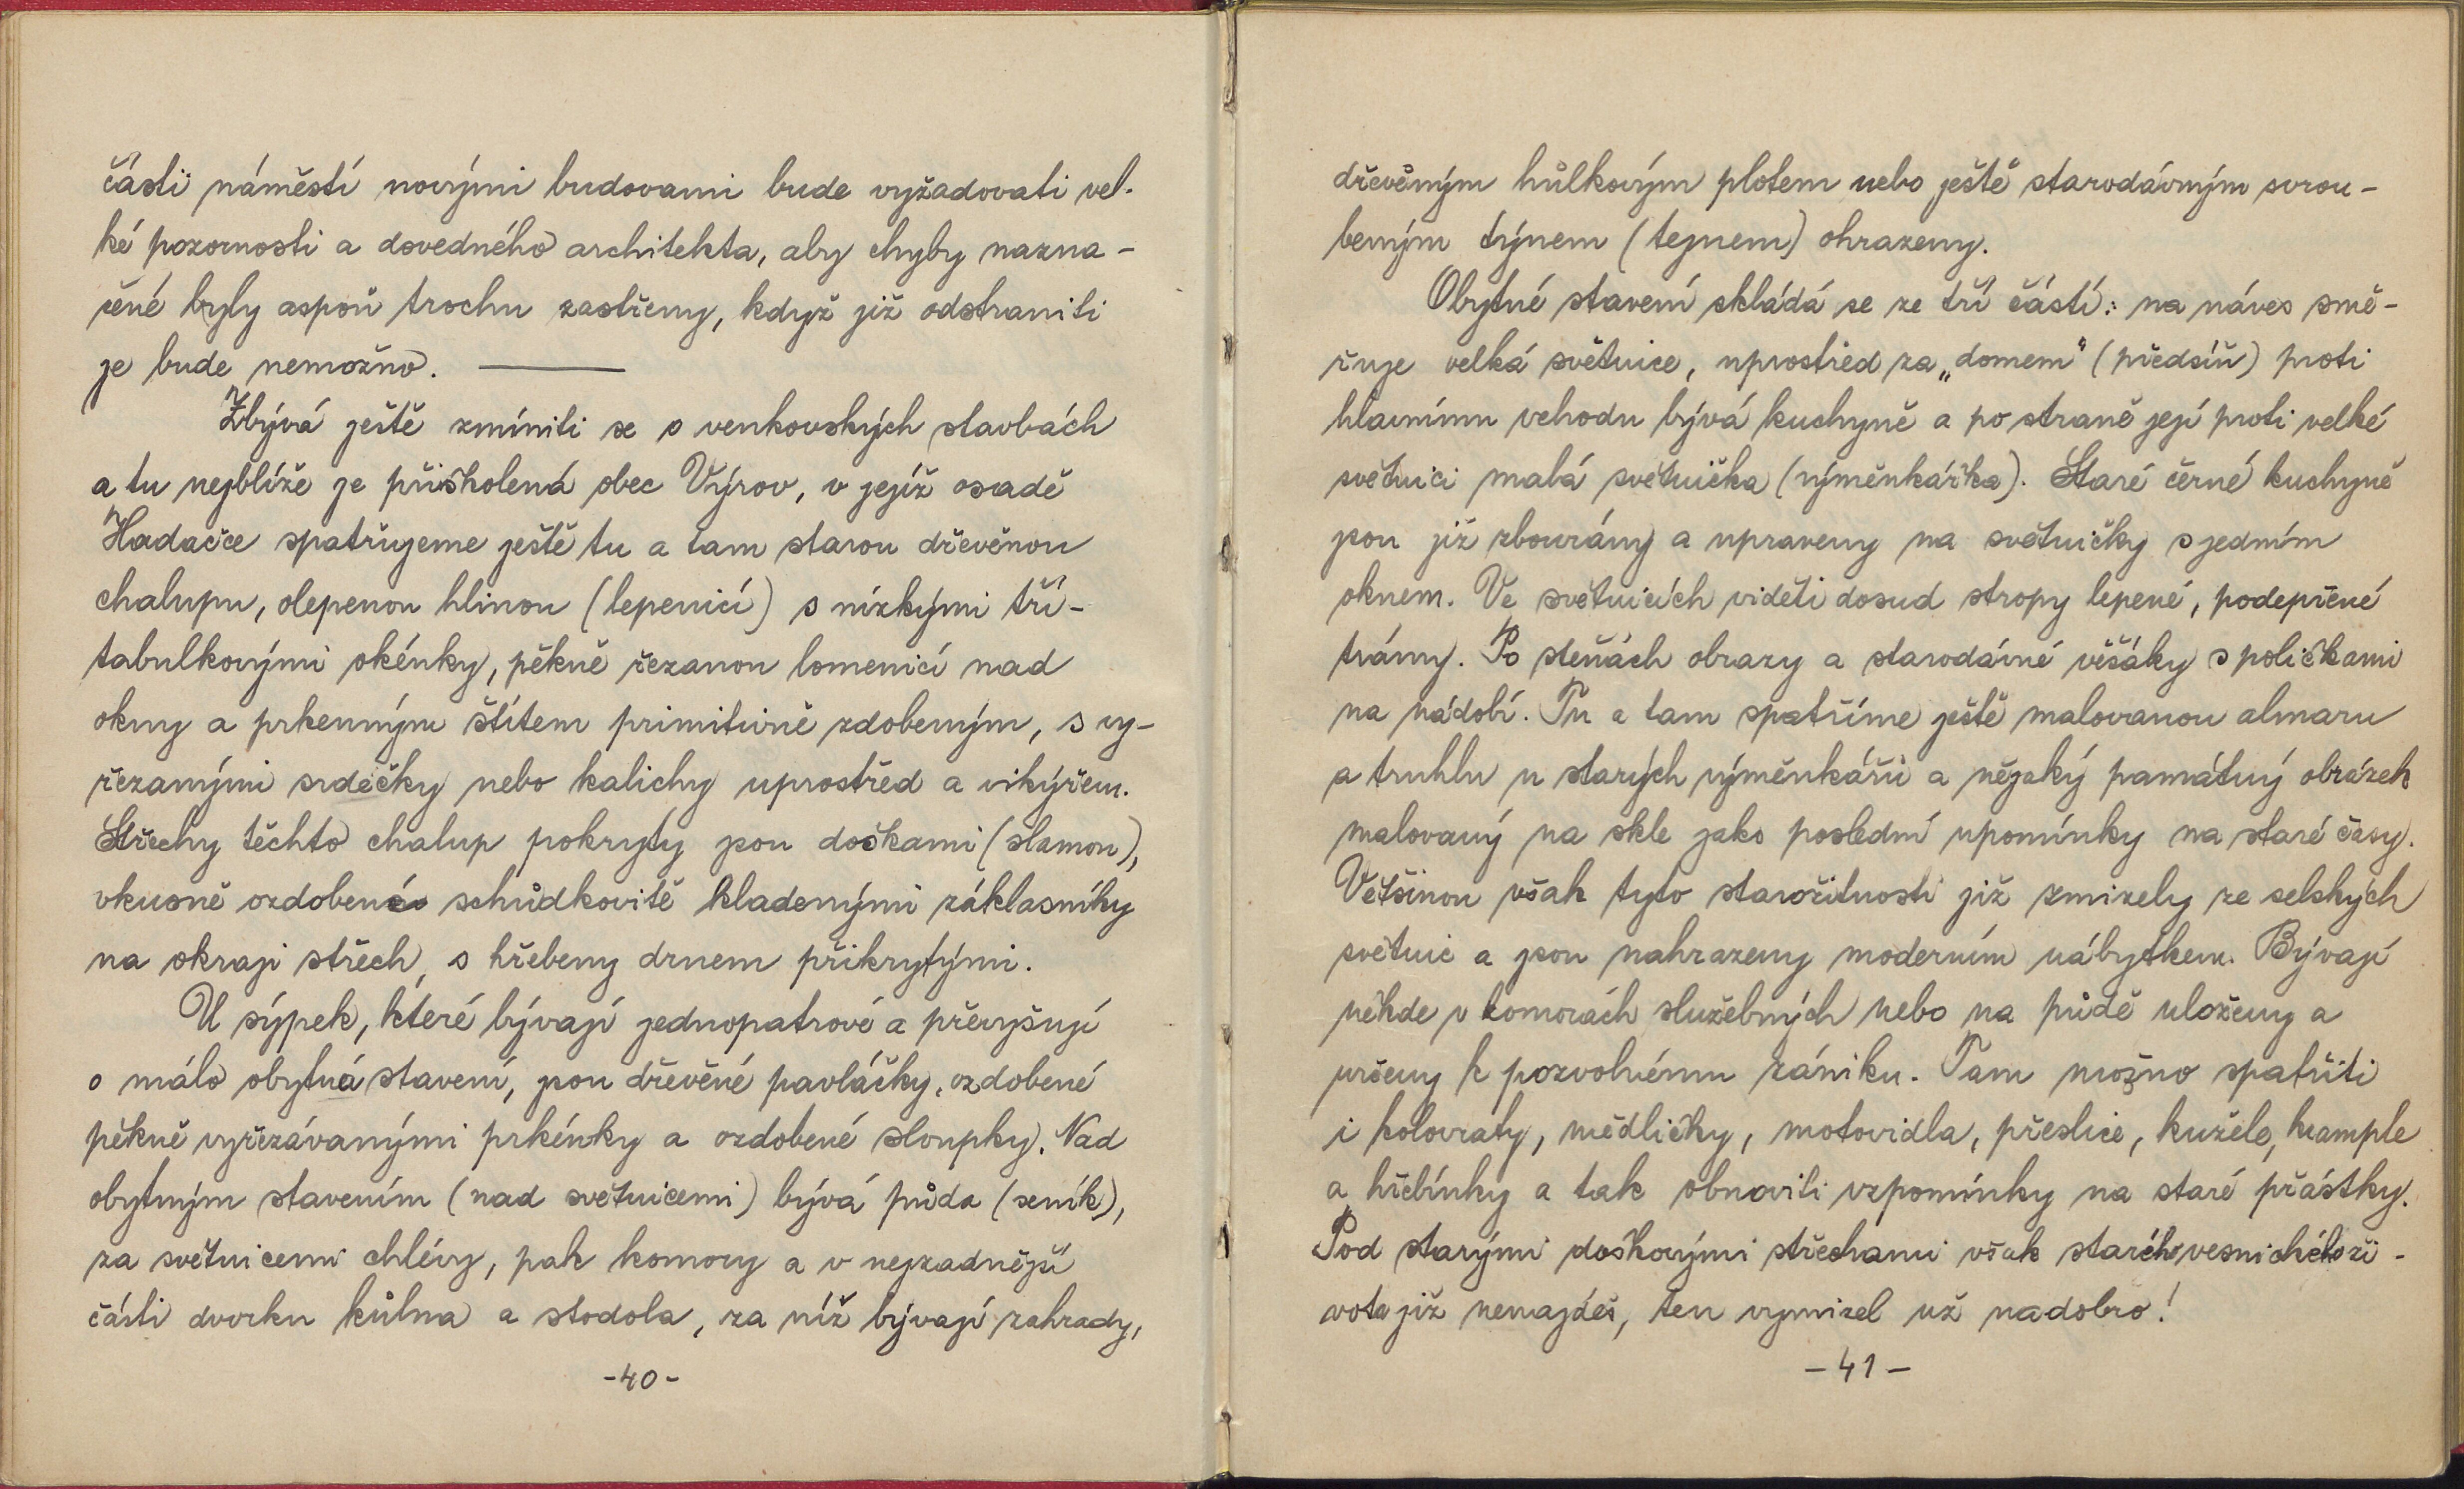 části náměstí novými budovami bude vyžadovati vel-
ké pozornosti a dovedného architekta, aby chyby nazna-
čené byly aspoň trochu zastřeny, když již odstraniti
je bude nemožno. ———
Zbývá ještě zmíniti se o venkovských stavbách
a tu nejblíže je přiškolená obec Výrov, v jejíž osadě
Hadačce spatřujeme ještě tu a tam starou dřevěnou
chalupu, olepenou hlinou (lepenicí) s nízkými tří-
tabulkovými okénky, pěkně řezanou lomenicí nad
okny a prkenným štítem primitivně zdobeným, s vy-
řezanými srdéčky nebo kalichy uprostřed a vikýřem.
Střechy těchto chalup pokryty jsou doškami (slamou),
vkusně ozdobené schůdkovitě kladenými záklasníky
na okraji střech, s hřebeny drnem přikrytými.
U sýpek, které bývají jednopatrové a převyšují
o málo obytná stavení, jsou dřevěné pavláčky, ozdobené
pěkně vyřezávanými prkénky a ozdobené sloupky. Nad
obytným stavením (nad světnicemi) bývá půda (seník),
za světnicemi chlévy, pak komory a v nejzadnější
části dvorku kůlna a stodola, za níž bývají zahrady,
-40-
dřevěným hůlkovým plotem nebo ještě starodávným srou-
beným týnem (tejnem) ohrazeny.
Obytné stavení skládá se ze tří částí: na náves smě-
řuje velká světnice, uprostřed za „domem“ (předsíň) proti
hlavnímu vchodu bývá kuchyně a po straně její proti velké
světnici malá světnička (výměnkářka). Staré černé kuchyně
jsou již zbourány a upraveny na světničky s jedním
oknem. Ve světnicích viděti dosud stropy lepené, podepřené
trámy. Po stěnách obrazy a starodávné věšáky s poličkami
na nádobí. Tu a tam spatříme ještě malovanou almaru
a truhlu u starých výměnkářů a nějaký památný obrázek
malovaný na skle jako poslední upomínky na staré časy.
Většinou však tyto starožitnosti již zmizely ze selských
světnic a jsou nahrazeny moderním nábytkem. Bývají
někde v komorách služebných nebo na půdě uloženy a
určeny k pozvolnému zániku. Tam možno spatřiti
i kolovraty, mědličky, motovidla, přeslice, kužele, krample
a hřebínky a tak obnoviti vzpomínky na staré přástky.
Pod starými doškovými střechami však starého vesnického ži-
vota již nenajdeš, ten vymizel už nadobro!
-41-